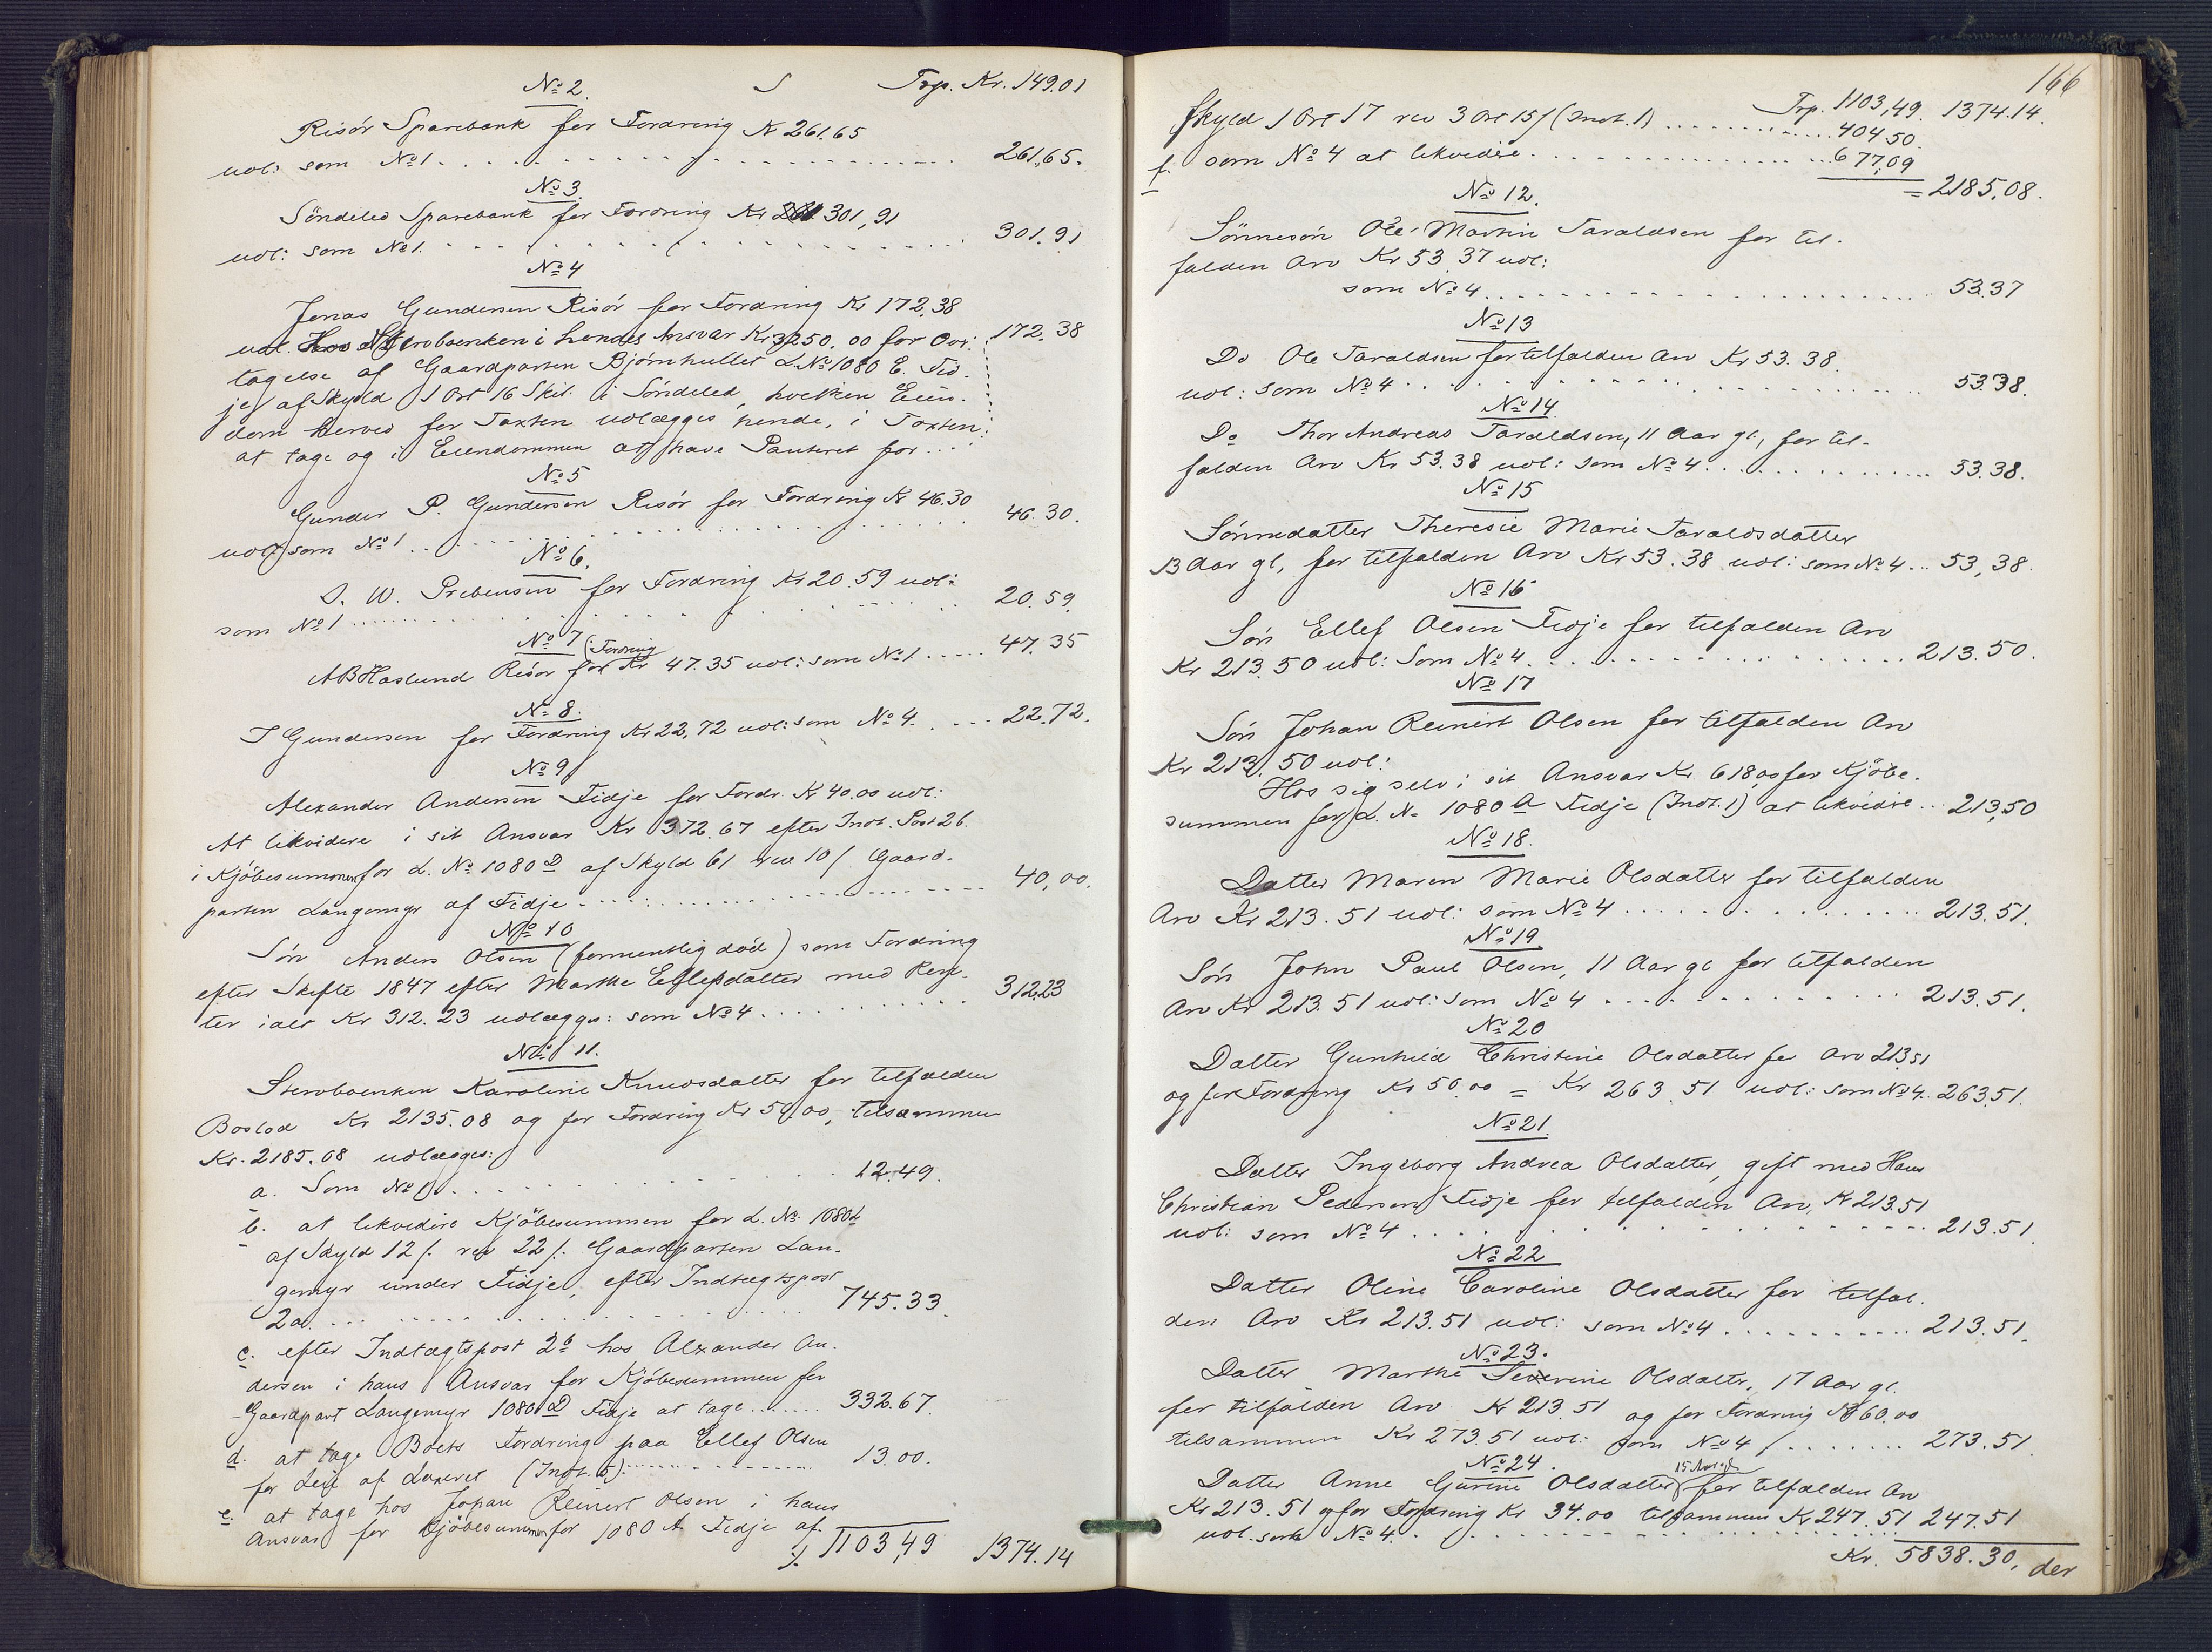 No 2. Trp. Kr. 149.01
Risör Sparebank for Fordring Kr 261.65
udl: som No 1. 261,65.
No 3.
Söndeled Sparebank for Fordring Kr 301,91
udl: som No 1. 301.91
No 4
Jonas Gundersen Risör for Fordring Kr 172,38
udl. Hos Stervboenken i hendes Ansvar Kr 3250.00 for Ov: 172.38
tagelse af Gaardparten Bjørnhullet L. No 1080 E. Fid-
je af Skyld 1 Ort 16 Skil. i Söndeled, hvilken Eien-
dom herved for Taxten udlægges hende, i Taxten
at tage og i Eiendommen at have Panteret for...
No 5
Gunder P. Gundersen Risör for Fordring Kr 46.30
udl: som No 1 46.30.
No 6.
S. W. Prebensen for Fordring Kr 20.59 udl:
som No 1 20.59.
No 7 (Fordring
AB Haslund Risör for Kr 47.35 udl: som No 1. 47.35
No 8.
J Gundersen for Fordring Kr 22,72 udl: som No 4. 22.72.
No 9
Alexander Andersen Fidje for Fordr. Kr 40.00 udl:
At likvidere i sit Ansvar Kr 372.67 efter Indt. Post 2 b.
i Kjöbesummen for L. No 1080 D af Skyld 6 /. rev 10 /. Gaard-
parten Langemyr af Fidje 40,00.
No 10
Sön Anders Olsen (formentlig död) som Fordring
efter Skifte 1847 efter Marthe Ellefsdatter med Ren-
ter ialt Kr 312.23 udlægges: som No 4 312,23
No 11.
Stervboenken Karoline Knudsdatter for tilfalden
Boslod Kr 2135.08 og for Fordring Kr 50.00, tilsammen
Kr. 2185.08 udlægges:
a. Som No 1 12.49.
b. at likvidere Kjöbesummen for L. No 1080
af Skyld 12 /. rev 22 /. Gaardparten Lan-
gemyr under Fidje, efter Indtægtspost
2 a. 745.33.
c. efter Indtægtspost 2 b hos Alexander An-
dersen i hans Ansvar for Kjöbesummen for
Gaardpart Langemyr 1080 D Fidje at tage 332.67.
d. at tage Boets Fordring paa Ellef Olsen
for Leie af Laxeret (Indt. 5). 13.00.
e. at tage hos Johan Reinert Olsen i hans
Ansvar for Kjöbesummen for 1080 A Fidje af
/. 1103,49 1374.14
166
Trp. 1103,49. 1374.14.
Skyld 1 Ort 17 rev 3 Ort 15 / (Indt. 1) 404.50.
f. som No 4 at likvidere 677,09
= 2185,08.
No 12.
Sönnesön Ole Martin Taraldsen for til-
falden Arv Kr 53.37 udl:
som No 4 53.37
No 13
Do Ole Taraldsen for tilfalden Arv Kr 53.38.
udl: som No 4 53.38.
No 14.
Do Thor Andreas Taraldsen, 11 Aar gl, for til-
falden Arv Kr 53.38 udl: som No 4 53.38.
No 15
Sönnedatter Theresie Marie Taraldsdatter
13 Aar gl, for tilfalden Arv Kr 53.38 udl: som No 4 53,38.
No 16
Sön Ellef Olsen Fidje for tilfalden Arv
Kr 213.50 udl: Som No 4 213.50.
No 17
Sön Johan Reinert Olsen for tilfalden Arv
Kr 213,50 udl:
Hos sig selv i sit Ansvar Kr. 618,00 for Kjöbe-
summen for L. No 1080 A Fidje (Indt. 1) at likvidere 213,50
No 18.
Datter Maren Marie Olsdatter for tilfalden
Arv Kr 213.51 udl: som No 4 213.51.
No 19
Sön John Paul Olsen, 11 Aar gl for tilfalden
Arv Kr 213.51 udl: som No 4 213.51.
No 20
Datter Gunhild Christine Olsdatter for Arv 213,51
og for Fordring Kr 50.00 = Kr 263.51 udl: som No 4. 263.51.
No 21.
Datter Ingeborg Andrea Olsdatter, gift med Hans
Christian Pedersen Fidje for tilfalden Arv, Kr 213.51
udl: som No 4 213.51.
No 22
Datter Oline Caroline Olsdatter for tilfal-
den Arv Kr 213.51 udl: som No 4 213.51.
No 23.
Datter Marthe Severine Olsdatter, 17 Aar gl.
for tilfalden Arv Kr 213.51 og for Fordring Kr 60.00
tilsammen Kr 273.51 udl: som No 4 273.51.
No 24.
15 Aar gl
Datter Anne Gurine Olsdatter for tilfalden Arv
Kr 213.51 og for Fordring Kr 34.00 tilsammen Kr 247.51 247.51
udl. som No 4.
Kr. 5838.30, der